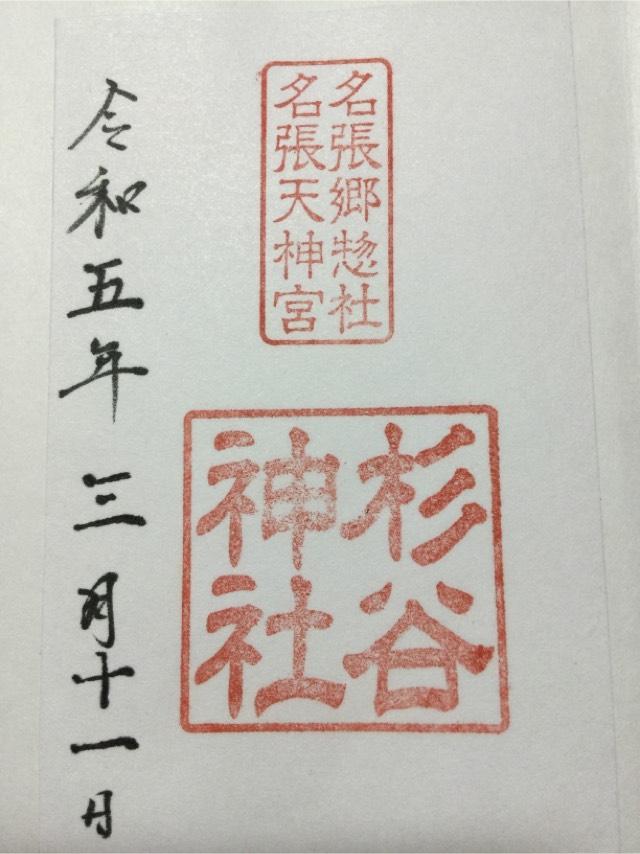 名張郷惣社
名張天神宮
杉谷
神社
令和五年三月十一日